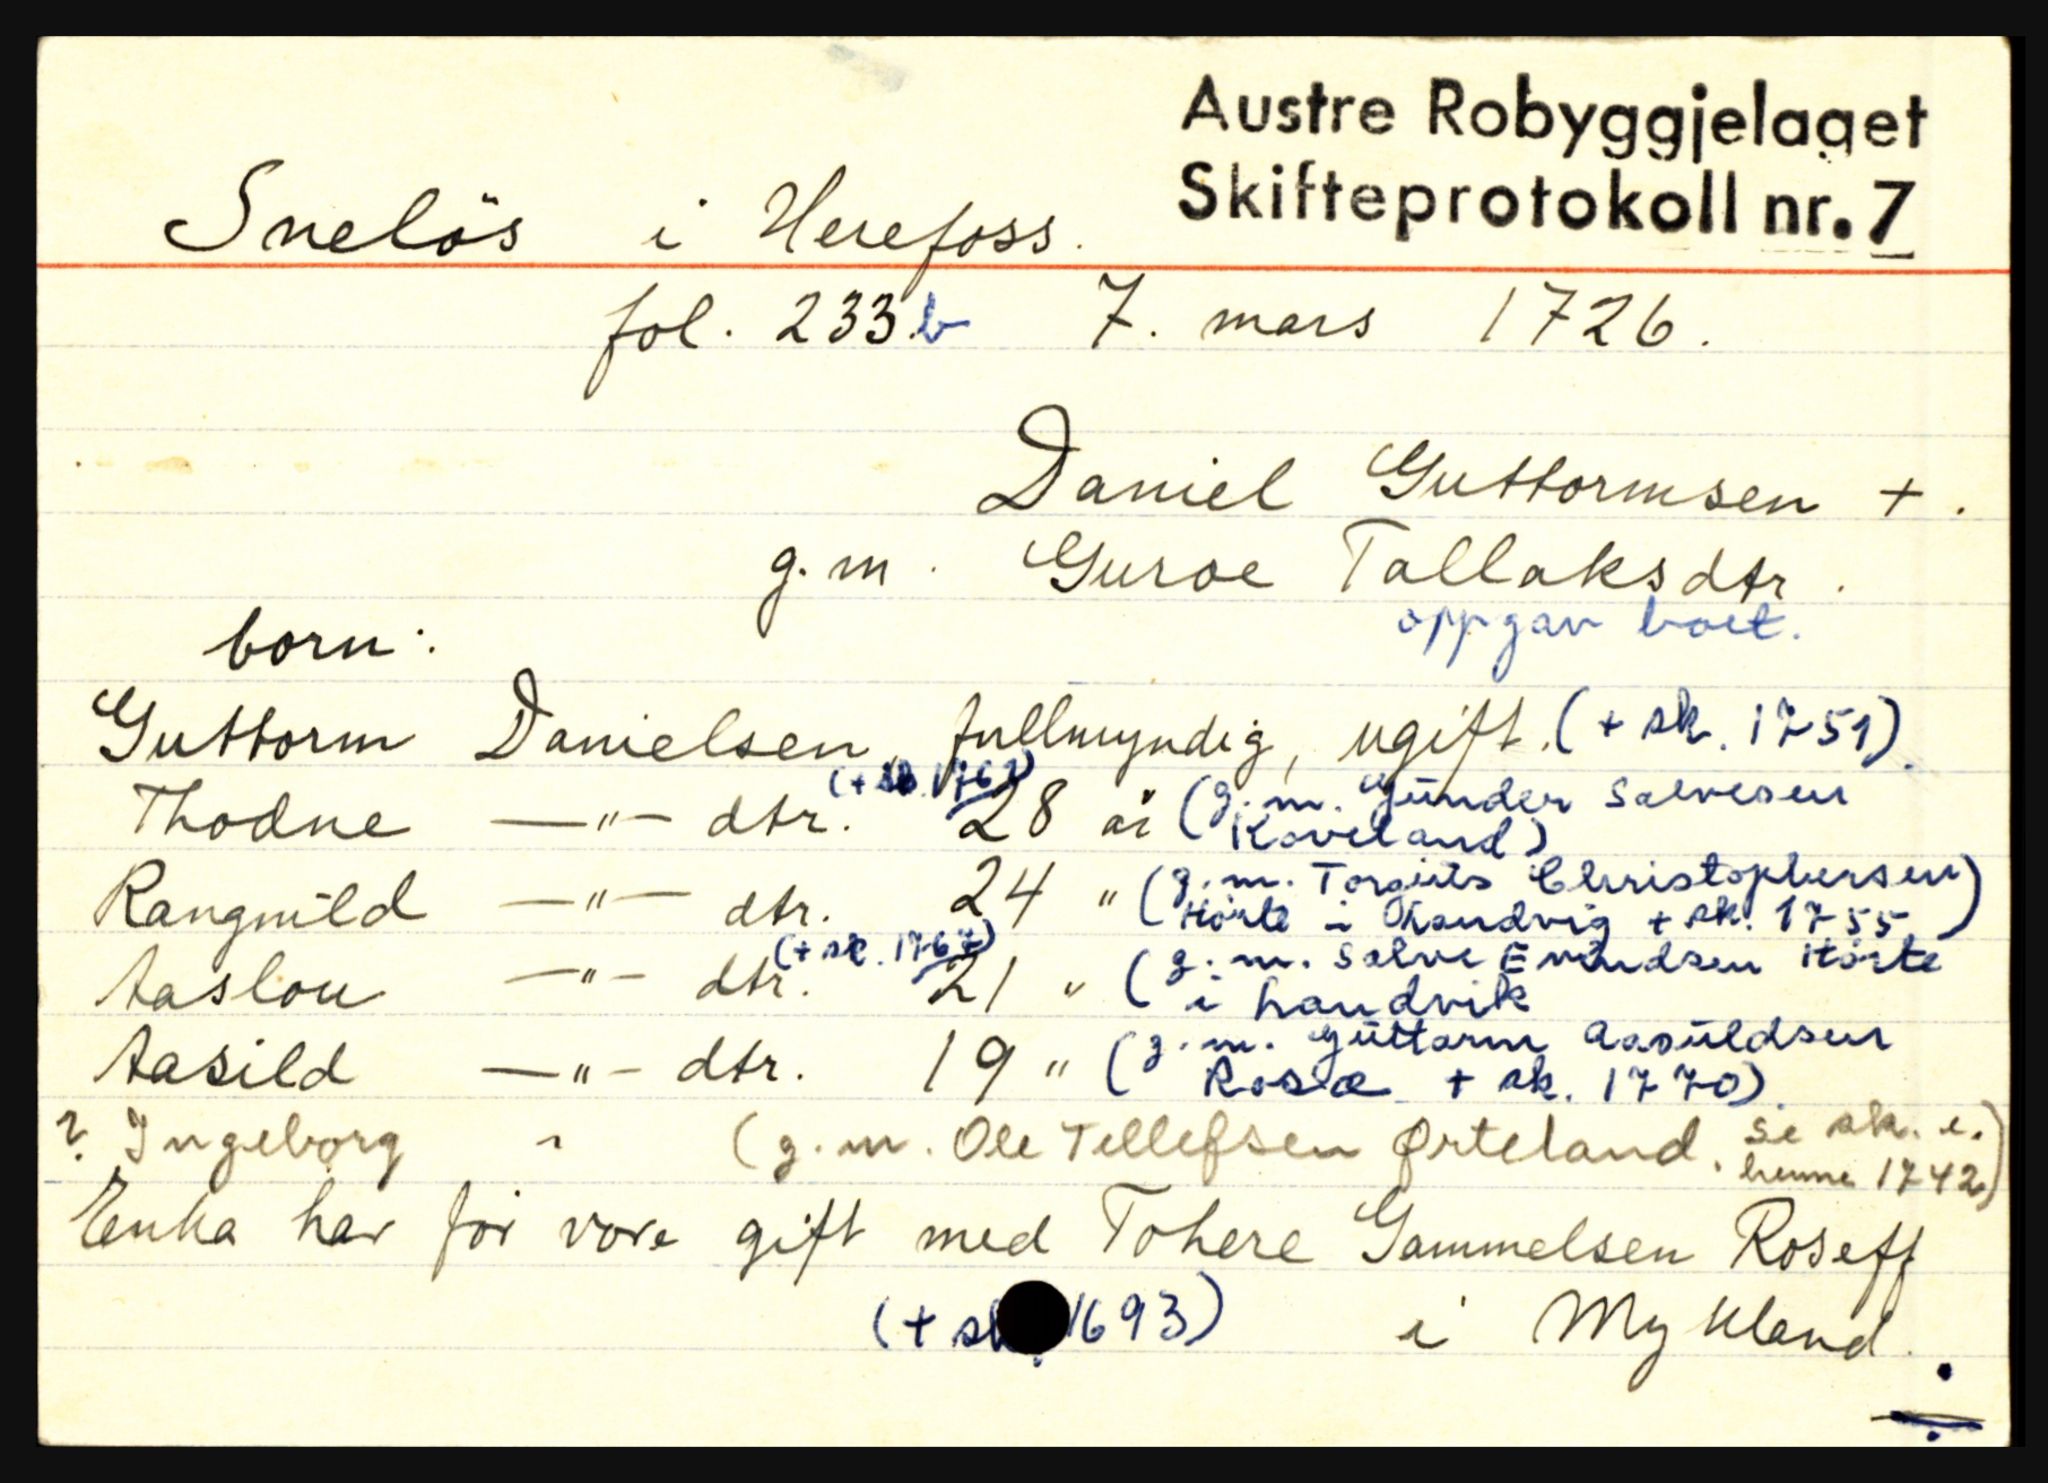 Austre Robyggjelaget
Skifteprotokoll nr. 7
Snelös i Herefoss.
fol. 233.b 7. mars 1726.
Daniel Guttormsen +.
g.m. Guroe Tallaksdtr.
oppgav boet.
born:
Guttorm Danielsen, fullmyndig, ugift. (+ sk. 1751)
Thodne —"— dtr. (+ sk. 176) 28 år (g.m. Gunder Salvesen
Koveland)
Rangnild —"— dtr. 24 " (g.m. Torgius Christophersen
Hörte i Landvig + sk. 1755)
Aaslou —"— dtr. (+ sk. 1767) 21 " (g.m. Salve Evindsen Hörte
i Landvik
Aasild —"— dtr. 19 " (g.m. Guttorm Aasuldsen
Rosæ + sk. 1770)
? Ingeborg " (g.m. Ole Tellefsen Ørteland. se sk. e.
henne 1742)
Enka har för vore gift med Tohere Gammelsen Roseff
(+ sk. 1693) i Mykland.